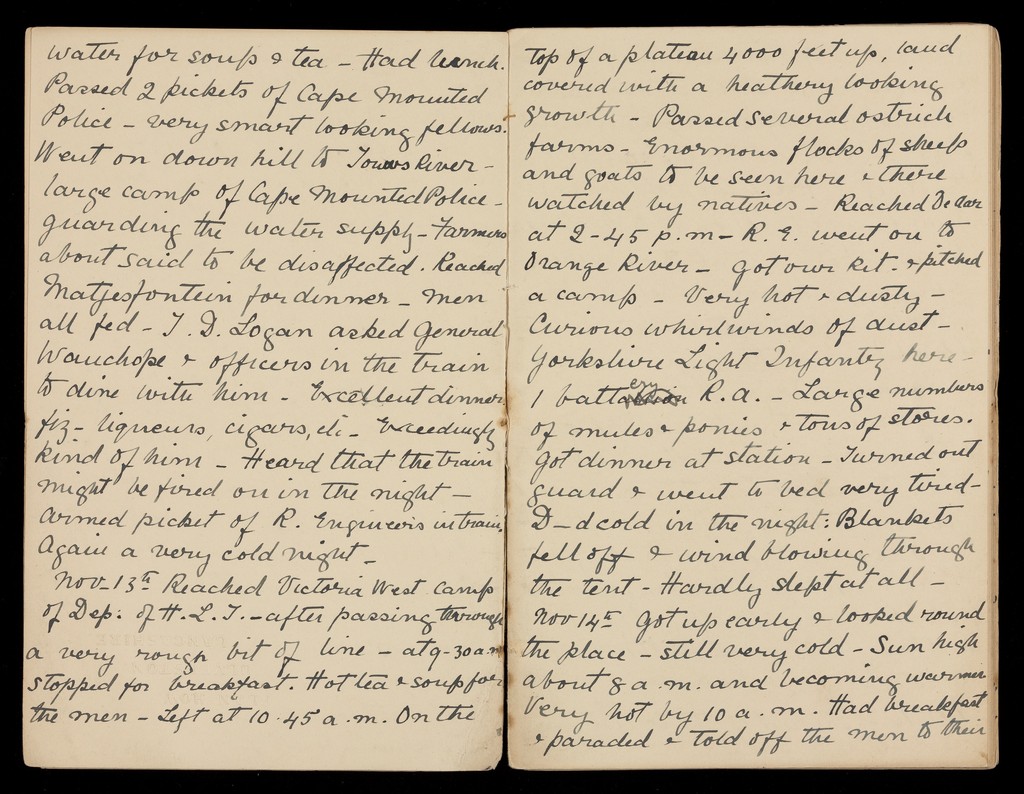 water for soup & tea – Had lunch.
Passed 2 pickets of Cape Mounted
Police – very smart looking fellows.
Went on down hill to Touws River –
large camp of Cape Mounted Police –
guarding the water supply – Farmers
about said to be disaffected. Reached
Matjesfontein for dinner – men
all fed – J. D. Logan asked General
Wauchope & officers in the train
to dine with him – Excellent dinner
fiz – liqueurs, cigars, etc – Exceedingly
kind of him – Heard that the train
might be fired on in the night –
Armed picket of R. Engineers in train.
Again a very cold night –
Nov–13th Reached Victoria West camp
of Dep: of H.L.I. – after passing through
a very rough bit of line – at 9–30 a.m
stopped for breakfast. Hot tea & soup for
the men – Left at 10.45 a.m. On the
top of a plateau 4000 feet up, land
covered with a heathery looking
growth – Passed several ostrich
farms – Enormous flocks of sheep
and goats to be seen here & there
watched by natives – Reached De Aar
at 2–45 p.m – R. E. went on to
Orange River – Got our kit. & pitched
a camp – Very hot & dusty –
Curious whirlwinds of dust –
Yorkshire Light Infantry here –
1 battery R.A. – Large numbers
of mules & ponies & tons of stores.
Got dinner at station – Turned out
guard & went to bed very tired –
D–d cold in the night: Blankets
fell off & wind blowing through
the tent – Hardly slept at all –
Nov 14th Got up early & looked round
the place – still very cold – Sun high
about 8 a.m. and becoming warmer
Very hot by 10 a.m. Had breakfast
& paraded & told off the men to their